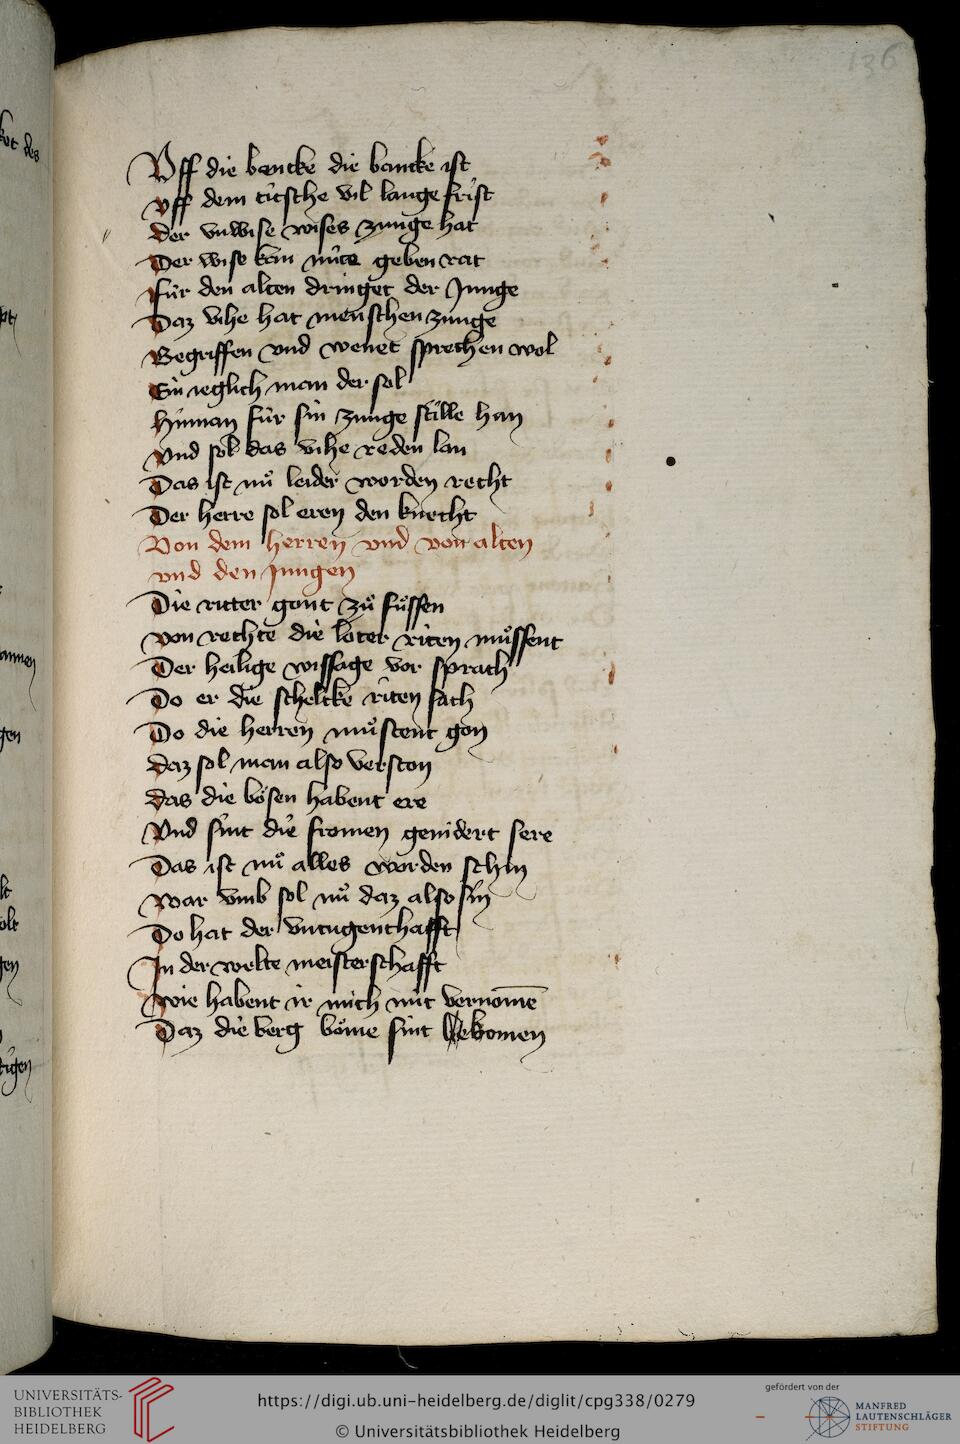 136
Vff die bancke die bancke ist
vff dem tütsche vil lange frist
der vnwise wises zunge hat
Der wise kan nüte geben rat
Für den alten dringet der Junge
Daz vihe hat menschen zunge
Begriffen vnd wenet sprechen wol
Ein ieglich man der sol
Hinnan für sin zunge stille han
Vnd sol das vihe reden lan
Das ist nuͦ leider worden recht
Der herre sol eren den knecht
Von dem herren vnd von alten
vnd den Jungen
Die ritter gont zuͦ fuͦssen
von rechte die loter riten muͦssent
Der heilige wissage vor sprach
Do er die schelcke riten sach
Do die herren muͦstent gon
daz sol man also verston
das die bösen habent ere
Vnd sint die fromen genidert sere
Das ist nuͦ alles worden schin
war vmb sol nuͦ daz also sin
Do hat der vntugenthafft
In der welte meisterschafft
wie habent ir mich nit vernomē
Daz die berg böme sint bekomen
UNIVERSITÄTS-
BIBLIOTHEK
HEIDELBERG
https://digi.ub.uni-heidelberg.de/diglit/cpg338/0279
© Universitätsbibliothek Heidelberg
gefördert von der
MANFRED
LAUTENSCHLÄGER
STIFTUNG